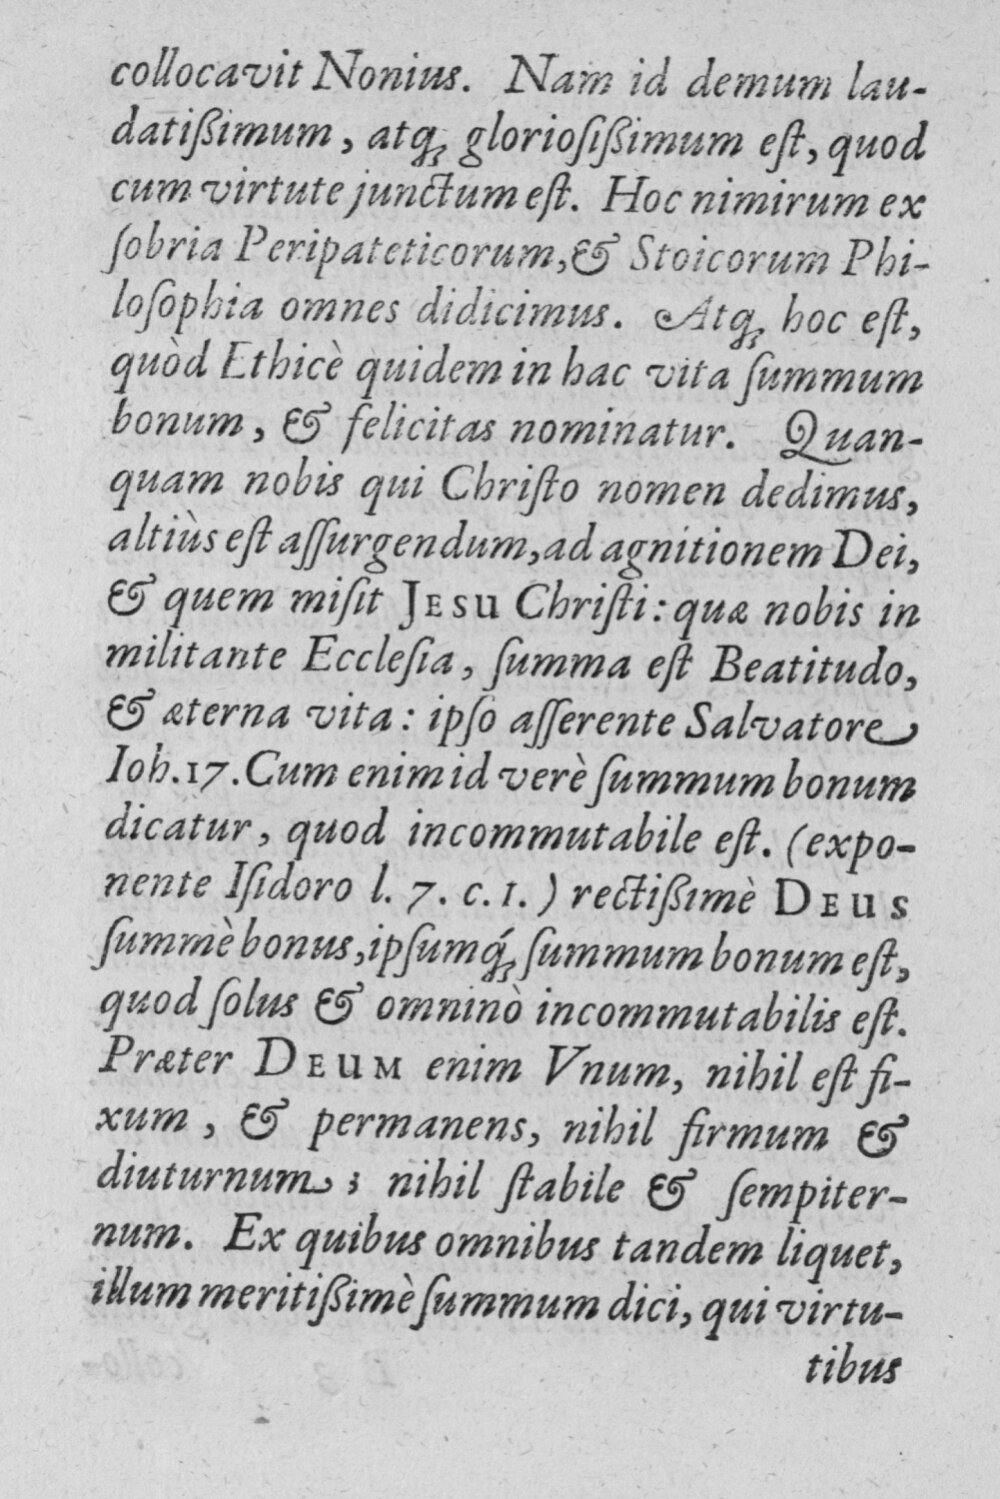 collocavit Nonius. Nam id demum lau-
datißimum, atq́ꝫ glorioſißimum eſt, quod
cum virtute junctum eſt. Hoc nimirum ex
ſobria Peripateticorum, & Stoicorum Phi-
loſophia omnes didicimus. Atqꝫ hoc eſt,
quòd Ethicè quidem in hac vita ſummum
bonum, & felicitas nominatur. Quan-
quam nobis qui Chriſto nomen dedimus,
altiùs eſt aſſurgendum, ad agnitionem Dei,
& quem miſit JESU Chriſti: quæ nobis in
militante Eccleſia, ſumma eſt Beatitudo,
& æterna vita: ipſo aſſerente Salvatore
Ioh. 17. Cum enim id verè ſummum bonum
dicatur, quod incommutabile eſt. (expo-
nente Iſidoro l. 7. c. 1.) rectißimè DEUS
ſummè bonus, ipſumq́ꝫ ſummum bonum eſt,
quod ſolus & omninò incommutabilis eſt.
Præter DEUM enim Vnum, nihil eſt fi-
xum, & permanens, nihil firmum &
diuturnum; nihil ſtabile & ſempiter-
num. Ex quibus omnibus tandem liquet,
illum meritißimè ſummum dici, qui virtu-
tibus